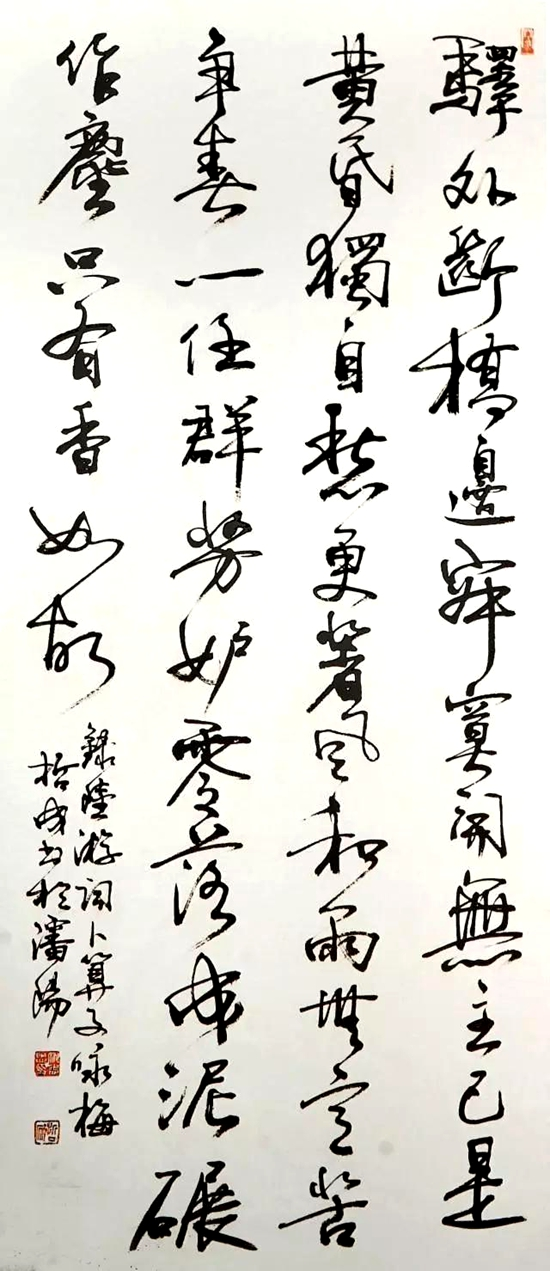 驛外斷橋邊寂寞開無主已是
黄昏獨自愁更著風和雨無意苦
爭春一任群芳妒零落成泥碾
作塵只有香如故
錄陸游詞卜算子咏梅
哲成書於瀋陽